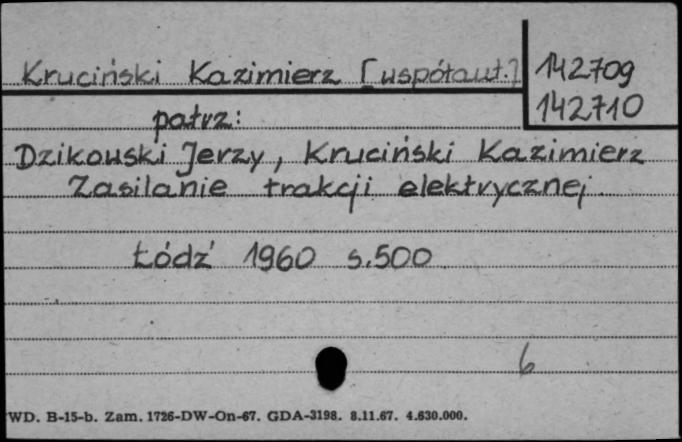 Kruciński Kazimierz [współaut.] 142709
142710
patrz:
Dzikowski Jerzy, Kruciński Kazimierz
Zasilanie trakcji elektrycznej.
Łódź 1960 s.500
6
WD. B-15-b. Zam. 1726-DW-On-67. GDA-3198. 8.11.67. 4.630.000.